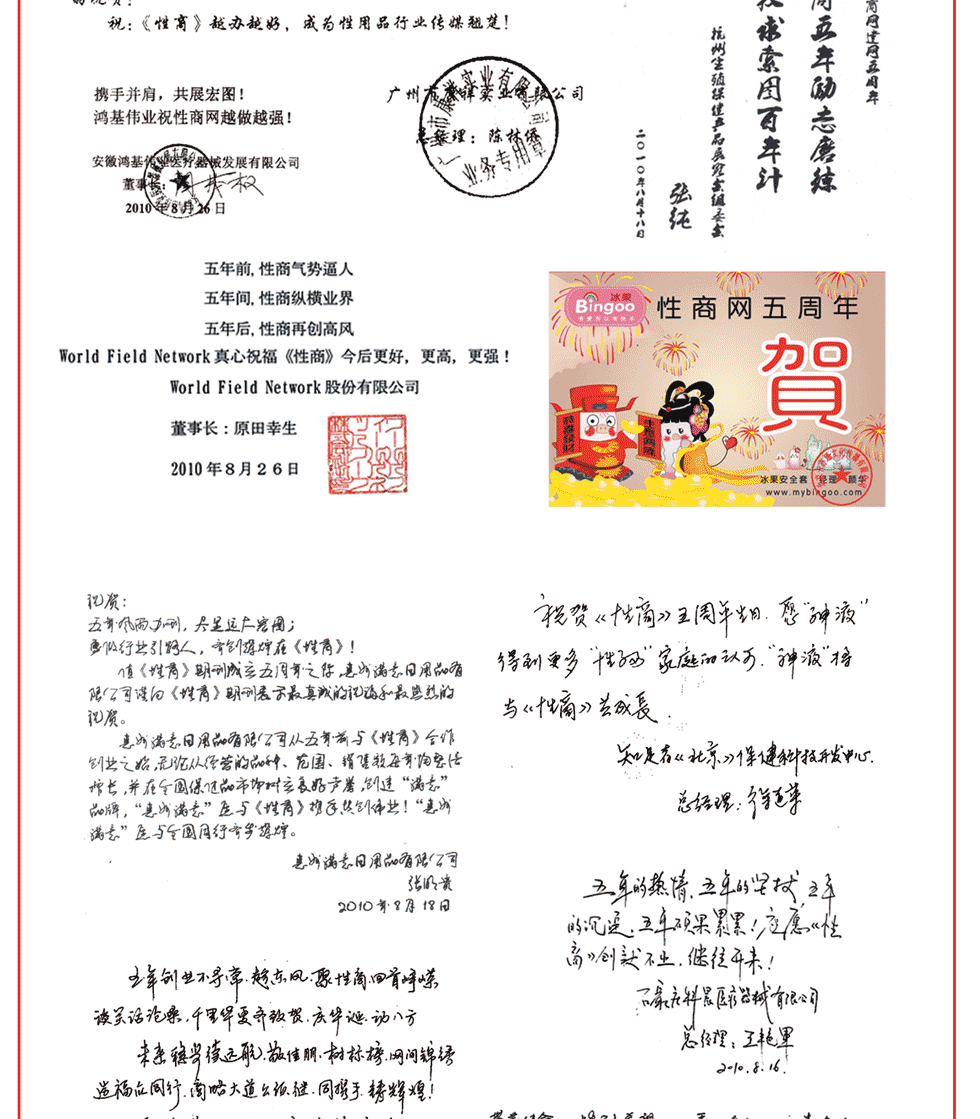 祝：《性商》越办越好，成为性用品行业传媒翘楚！
携手并肩，共展宏图！
鸿基伟业祝性商网越做越强！
安徽鸿基伟业医疗器械发展有限公司
董事长：
2010年8月26日
实业有限公司
总经理：陈林侨
业务专用章
商网建网五周年
商五年励志磨练
求索图百年计
杭州生殖保健产品展览会组委会
张纯
二〇一〇年八月十八日
五年前，性商气势逼人
五年间，性商纵横业界
五年后，性商再创高风
World Field Network真心祝福《性商》今后更好，更高，更强！
World Field Network股份有限公司
董事长：原田幸生
2010年8月26日
冰果
Bingoo
性商网五周年
賀
恭喜发财
冰果安全套 经理 颜华
www.mybingoo.com
祝贺：
五年风雨历剑，
行业引路人，《性商》！
值《性商》期刊成立五周年之际，惠州满志日用品有
限公司谨向《性商》期刊表示最真诚的祝福和最热烈的
祝贺。
惠州满志日用品有限公司从五年前与《性商》合作
创业之始，无论从经营的品种、范围、销售较每年均整倍
增长，并在全国保健品市场树立良好声誉，创造“满志”
品牌，“惠州满志”愿与《性商》携手共创伟业！“惠州
满志”愿与全国同行齐步辉煌。
惠州满志日用品有限公司
2010年8月18日
祝贺《性商》五周年生日．愿“神液”
得到更多“性福”家庭的认可．“神液”将
与《性商》共成長．
知是在《北京》保健科技开发中心．
总经理：
五年的热情，五年的坚持，五年
的沉迷，五年硕果累累！愿《性
商》创就大业，继往开来！
医疗器械有限公司
总经理：王艳军
2010.8.16.
五年创业不寻常．趁东风．聚性商．回首峥嵘
谈笑话沧桑，千里单更齐致贺．庆华诞．动八方
未来稳步续远航，敬佳朋．树标榜．网间锦绣
造福应同行，商略大道公依继．同携手．铸辉煌！